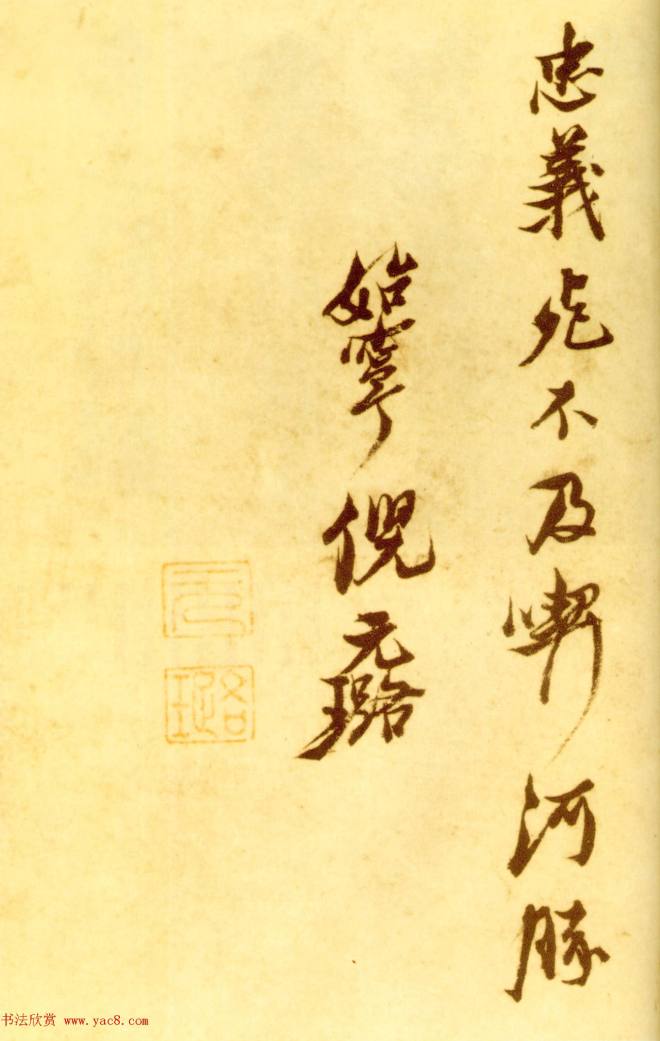 忠義死不及河豚
始寧倪元璐
元
璐
书法欣赏 www.yac8.com